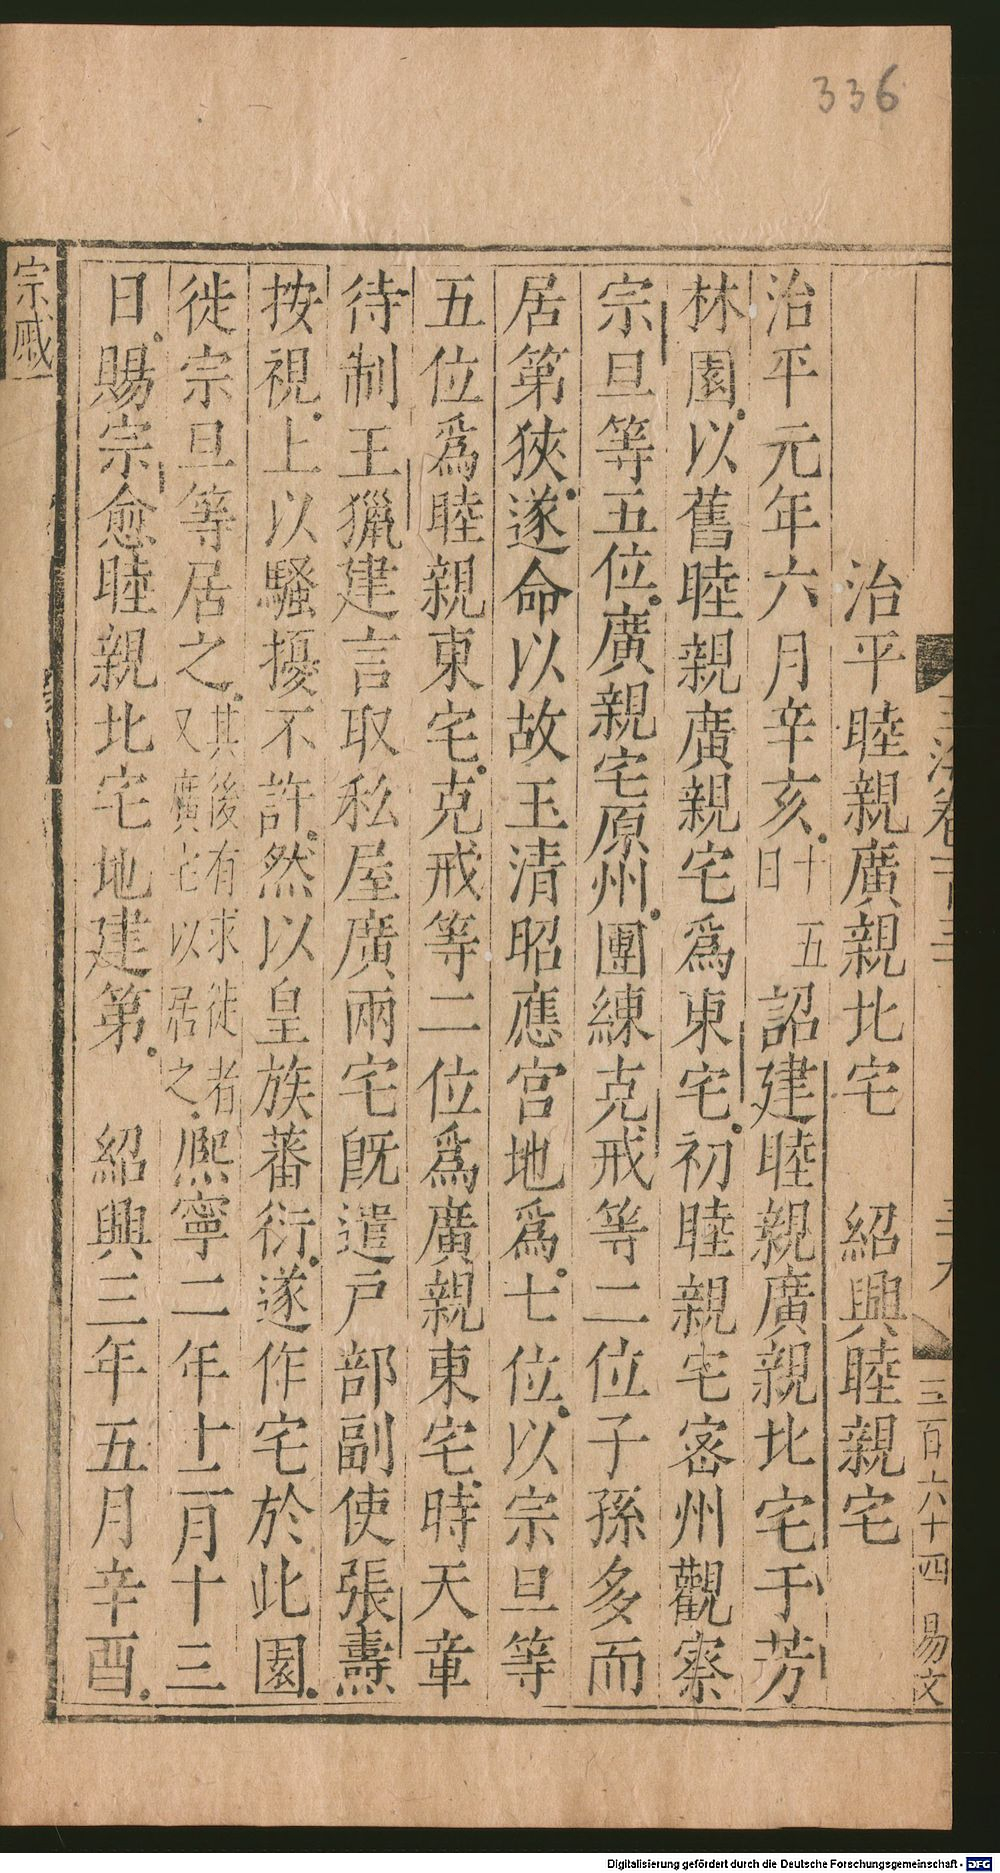 336
三百六十四　易文
治平睦親廣親北宅　紹興睦親宅
治平元年六月辛亥十五日詔建睦親廣親北宅于芳
林園以舊睦親廣親宅爲東宅初睦親宅密州觀察
宗旦等五位廣親宅原州團練克戒等二位子孫多而
居第狹遂命以故玉清昭應宫地爲七位以宗旦等
五位爲睦親東宅克戒等二位爲廣親東宅時天章
待制王獵建言取私屋廣兩宅旣遣戸部副使張燾
按視上以騷擾不許然以皇族蕃衍遂作宅於此園
徙宗旦等居之其後有求徙者又廣宅以居之熈寧二年十二月十三
日賜宗愈睦親北宅地建第　紹興三年五月辛酉
宗戚
Digitalisierung gefördert durch die Deutsche Forschungsgemeinschaft - DFG